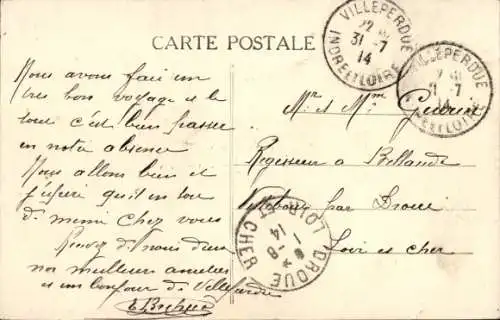 CARTE POSTALE
VILLEPERDUE
22
31-7
14
INDRE ET LOIRE
VILLEPERDUE
31-7
14
INDRE ET LOIRE
Nous avons fait un
tres bon voyage et le
tout c'est bien passer
en notre absence
Nous allons bien et
j'espere qu'il en soit
de meme chez vous
Recevez de nous deux
nos meilleurs amities
et un bonjour de Villeperdue
Mr et Mme Guerin
Regisseur a Bellande
Villebout par Droué
Loir et cher
DROUE
1-8
14
LOIR ET CHER